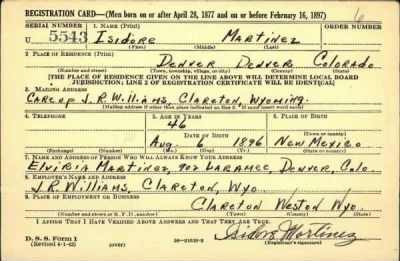 REGISTRATION CARD—(Men born on or after April 28, 1877 and on or before February 16, 1897)
SERIAL NUMBER 1. NAME (Print) ORDER NUMBER
U 5543 Isidore Martinez
(First) (Middle) (Last)
2. PLACE OF RESIDENCE (Print)
Denver Denver Colorado
(Number and street) (Town, township, village, or city) (County) (State)
[THE PLACE OF RESIDENCE GIVEN ON THE LINE ABOVE WILL DETERMINE LOCAL BOARD
JURISDICTION; LINE 2 OF REGISTRATION CERTIFICATE WILL BE IDENTICAL]
3. MAILING ADDRESS
Care of J.R. Williams, Clareton, Wyoming.
[Mailing address if other than place indicated on line 2. If same insert word same]
4. TELEPHONE 5. AGE IN YEARS 6. PLACE OF BIRTH
46
DATE OF BIRTH (Town or county)
Aug 6 1896 New Mexico
(Exchange) (Number) (Mo.) (Day) (Yr.) (State or country)
7. NAME AND ADDRESS OF PERSON WHO WILL ALWAYS KNOW YOUR ADDRESS
Martinez, Laramee, Denver, Colo.
8. EMPLOYER'S NAME AND ADDRESS
J.R. Williams, Clareton, Wyo
9. PLACE OF EMPLOYMENT OR BUSINESS
Clareton Weston Wyo.
(Number and street or R. F. D. number) (Town) (County) (State)
I AFFIRM THAT I HAVE VERIFIED ABOVE ANSWERS AND THAT THEY ARE TRUE.
D. S. S. Form 1
(Revised 4-1-42) (over) 16—21630-2 Isidore Martinez
(Registrant's signature)